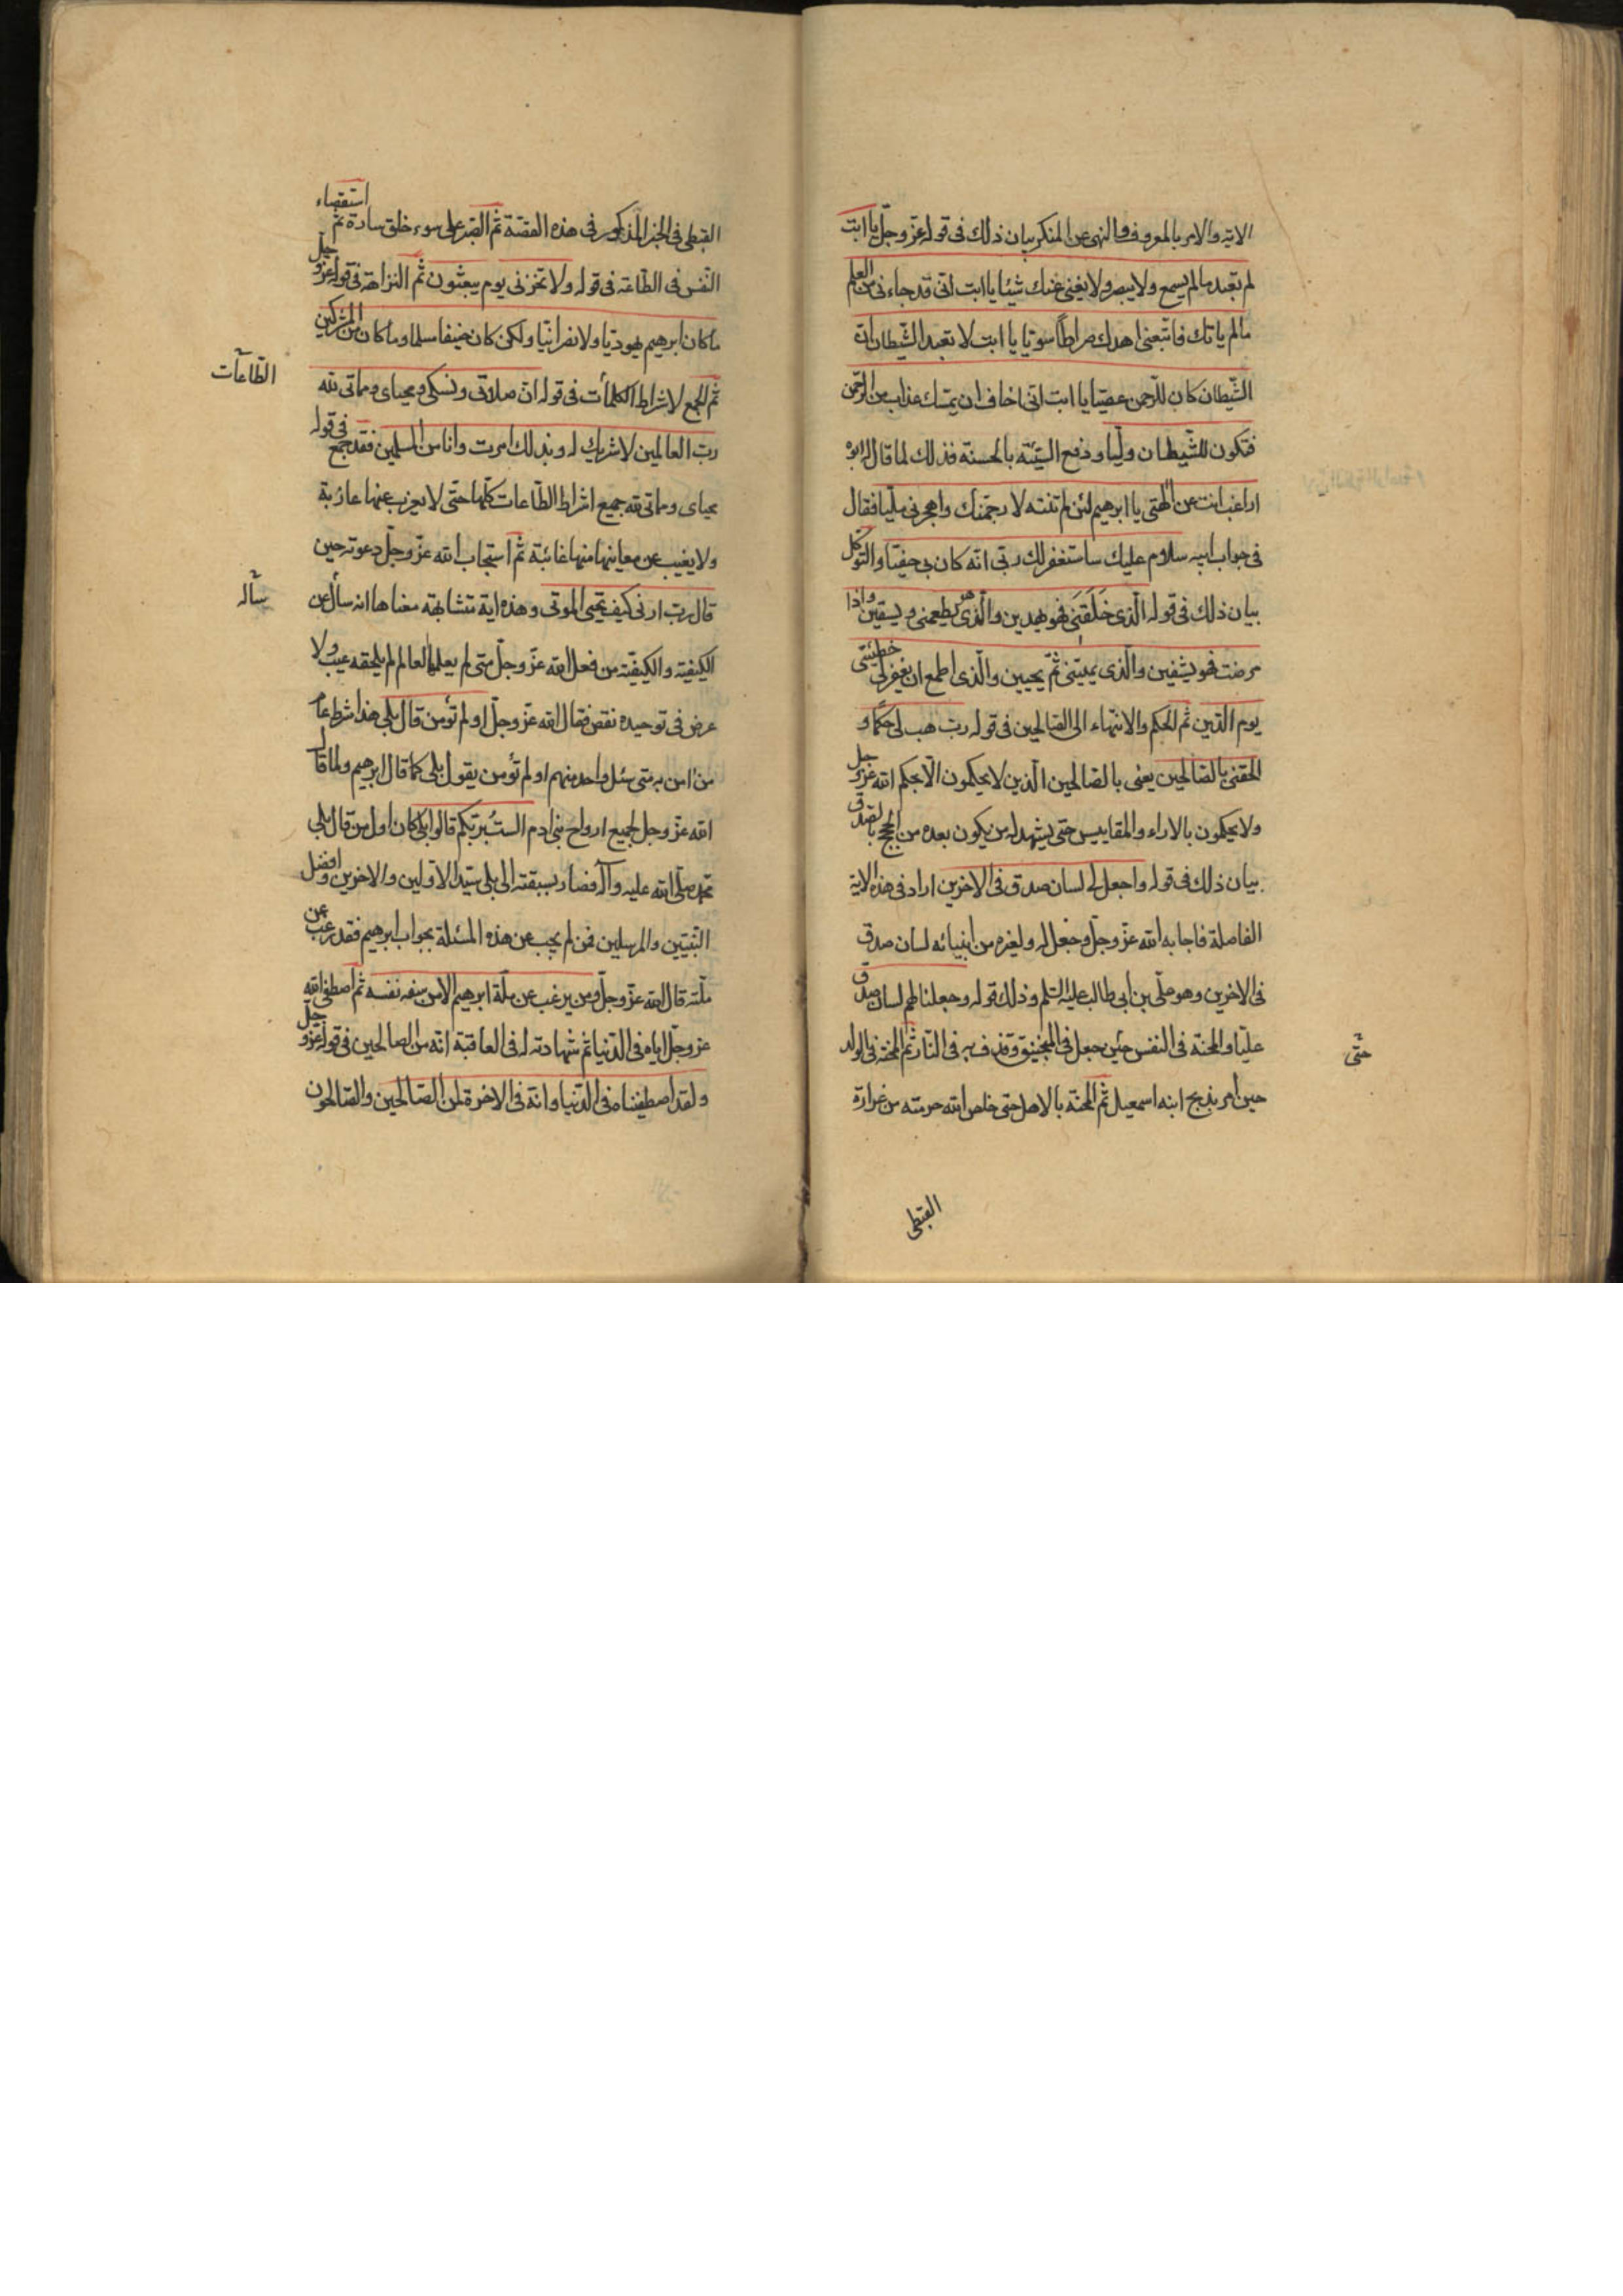 الاية والامر بالمعروف والنهى عن المنكر بيان ذلك فى قوله عزّ وجلّ يا ابت
لم تعبد ما لم يسمع ولا يبصر ولا يغنى عنك شيئا يا ابت انى قد جاءنى من العلم
ما لم ياتك فاتّبعنى اهدك صراطاً سويّا يا ابت لا تعبد الشّيطان انّ
الشّيطان كان للرّحمن عصيّا يا ابت انى اخاف ان يمسّك عذاب من الرّحمن
فتكون للشّيطان وليّا ودفع السّيّئة بالحسنة فذلك لما قال له ابوه
اراغب انت عن الهتى يا ابرهيم لئن لم تنته لارجمنّك واهجرنى مليّا فقال
فى جواب ابيه سلام عليك ساستغفر لك ربّى انّه كان بى حفيّا والتّوكّل
بيان ذلك فى قوله الّذى خَلَقَنى فهو يهدين والّذى هو يطعمنى ويسقين واذا
مرضت فهو يشفين والّذى يميتنى ثمّ يحيين والّذى اطمع ان يغفر لى خطيئتى
يوم الدّين ثم الحكم والانتهاء الى الصّالحين فى قوله ربّ هب لى حكمًا و
الحقنى بالصّالحين يعنى بالصّالحين الّذين لا يحكمون الّا بحكم الله عزّ وجلّ
ولا يحكمون بالاراء والمقاييس حتى يشهد له من يكون بعده من الحجج بالصّدق
بيان ذلك فى قوله واجعل لى لسان صدق فى الاخرين اراد فى هذه الاية
الفاصلة فاجابه الله عزّ وجلّ وجعل له ولغيره من انبيائه لسان صدق
فى الاخرين وهو علىّ بن ابى طالب عليه السّلم وذلك قوله وجعلنا لهم لسان صدق
عليّا والمحنة فى النفس حين جعل فى المنجنيق وقذف به فى النّار ثم المحنة فى الولد
حتّى
حين أمر بذبح ابنه اسمعيل ثم المحنة بالاهل حتى خلّص الله حرمته من عرارة
القبطى
استقصاء
القبطى فى الخبر المذكور فى هذه القصّة ثم الصّبر على سوء خلق سارة ثم
النّفس فى الطّاعة فى قوله ولا تخزنى يوم يبعثون ثم النزاهة فى قوله عزّ وجلّ
ما كان ابرهيم يهوديّا ولا نصرانيّا ولكن كان حنيفا مسلما وما كان من المشركين
الطّاعات
ثم الجمع لاشراط الكلمات فى قوله انّ صلاتى ونسكى ومحياى ومماتى لله
ربّ العالمين لا شريك له وبذلك امرت وانا من المسلمين فقد جمع فى قوله
محياى ومماتى لله جميع اشراط الطّاعات كلّها حتّى لا يعزب عنها عازبة
ولا يغيب عن معانيها منها غائبة ثم استجاب الله عزّ وجلّ دعوته حين
سأله
قال ربّ ارنى كيف تحيى الموتى وهذه اية متشابهة معناها انه سأل عن
الكيفيّة والكيفيّة من فعل الله عزّ وجلّ متى لم يعلمها العالم لم يلحقه عيب ولا
عرض فى توحيده نقص فقال الله عزّ وجلّ اولم تؤمن قال بلى هذا شرط عامّ
من امن به متى سئل واحد منهم اولم تؤمن يقول بلى كما قال ابرهيم ولما قال
الله عزّ وجلّ لجميع ارواح بنى ادم الستُ بربّكم قالوا بلى كان اول من قال بلى
محمّد صلّى الله عليه وآله فصار بسبقته الى بلى سيّد الاوّلين والاخرين وافضل
النّبيّين والمرسلين فمن لم يجب عن هذه المسئلة بجواب ابرهيم فقد رغب عن
ملّته قال الله عزّ وجلّ ومن يرغب عن ملّة ابرهيم الا من سفه نفسه ثم اصطفى الله
عزّ وجلّ اياه فى الدّنيا ثم شهادته له فى العاقبة انّه من الصالحين فى قوله عزّ وجلّ
ولقد اصطفيناه فى الدّنيا وانّه فى الاخرة لمن الصّالحين والصّالحون